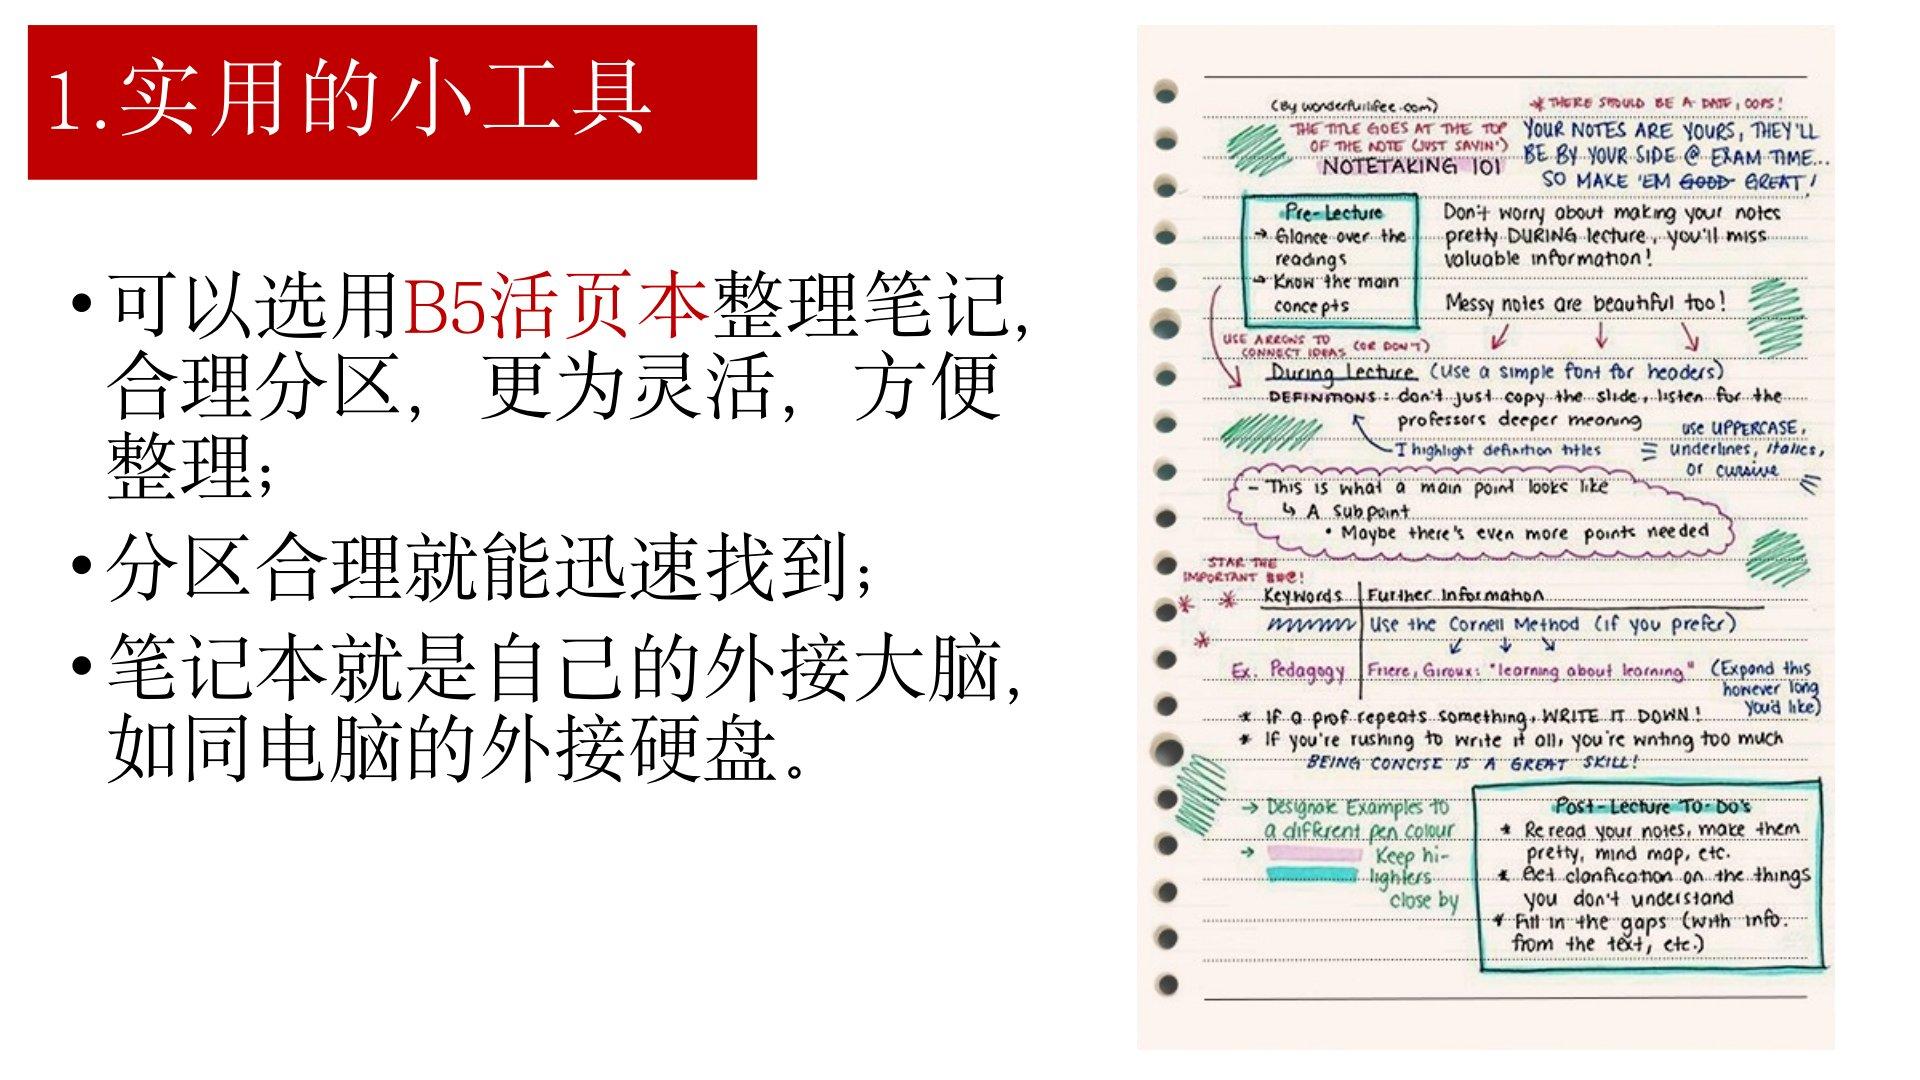 1.实用的小工具
•可以选用B5活页本整理笔记，
合理分区，更为灵活，方便
整理；
•分区合理就能迅速找到；
•笔记本就是自己的外接大脑，
如同电脑的外接硬盘。
(By wonderfullifee.com)
* THERE SHOULD BE A DATE, OOPS!
THE TITLE GOES AT THE TOP
OF THE NOTE (JUST SAYIN')
NOTETAKING 101
YOUR NOTES ARE YOURS, THEY'LL
BE BY YOUR SIDE @ EXAM TIME...
SO MAKE 'EM GOOD GREAT!
Pre-Lecture
→ Glance over the
readings
→ Know the main
concepts
Don't worry about making your notes
pretty DURING lecture, you'll miss
valuable information!
Messy notes are beautiful too!
USE ARROWS TO
CONNECT IDEAS (OR DON'T)
During Lecture (use a simple font for headers)
DEFINITIONS: don't just copy the slide, listen for the
professors deeper meaning
I highlight definition titles
use UPPERCASE,
underlines, italics,
or cursive
- This is what a main point looks like
↳ A Subpoint
• Maybe there's even more points needed
STAR THE
IMPORTANT $#@!
Keywords
Further Information
Use the Cornell Method (if you prefer)
Ex. Pedagogy
Friere, Giroux: "learning about learning"
(Expand this
however long
you'd like)
* If a prof repeats something, WRITE IT DOWN!
* If you're rushing to write it all, you're writing too much
BEING CONCISE IS A GREAT SKILL!
→ Designate Examples to
a different pen colour
→ Keep hi-
lighters
close by
Post-Lecture To-Do's
* Reread your notes, make them
pretty, mind map, etc.
* Get clarification on the things
you don't understand
* Fill in the gaps (with info.
from the text, etc.)